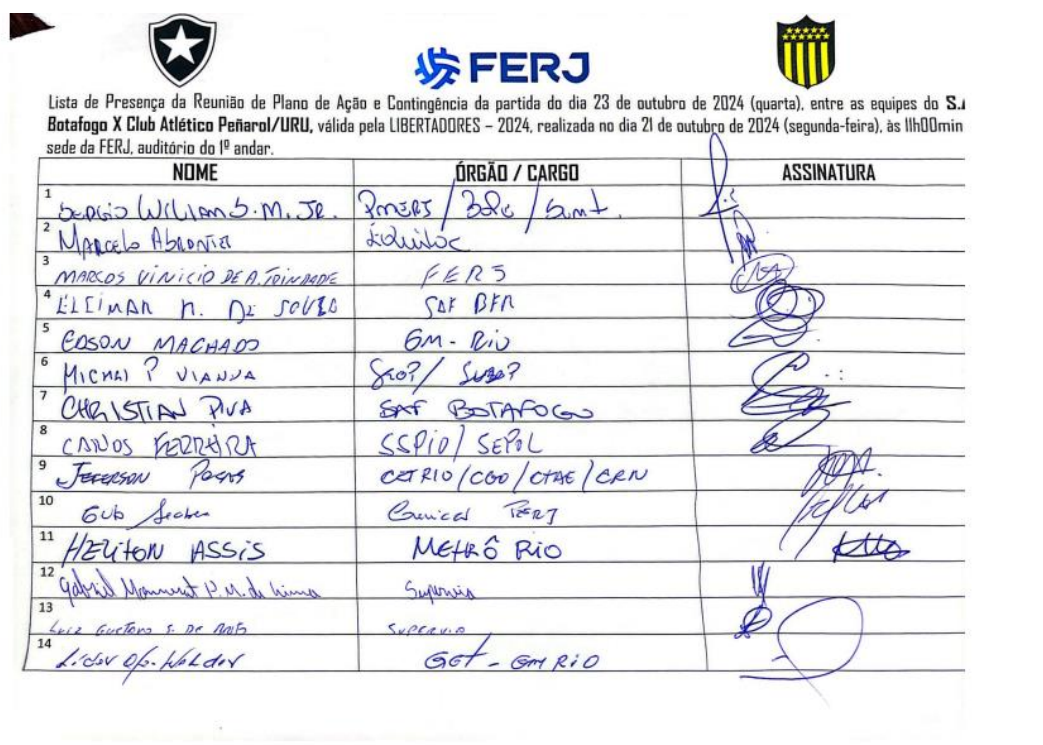 FERJ
Lista de Presença da Reunião de Plano de Ação e Contingência da partida do dia 23 de outubro de 2024 (quarta), entre as equipes do S.A
Botafogo X Club Atlético Peñarol/URU, válida pela LIBERTADORES – 2024, realizada no dia 21 de outubro de 2024 (segunda-feira), às 11h00min
sede da FERJ, auditório do 1º andar.
NOME ÓRGÃO / CARGO ASSINATURA
1 SERGIO WILIAM S. M. JR. PMERJ /
2 MARCELO
3 MARCOS VINICIO DE A. TRINDADE FERJ
4 ELEIMAR N. DE SOUZA SAF BFR
5 EDSON MACHADO GM - RIO
6 VIANNA
7 CHRISTIAN PIVA SAF BOTAFOGO
8 CARLOS FERREIRA SSPIO / SEPOL
9 JEFERSON CETRIO / CGO / CTAE / CRN
10 FERJ
11 HELITON ASSIS METRÔ RIO
12 Gabriel P. M. de Lima
13 LUIZ GUSTAVO S. DE
14 GET - GM RIO